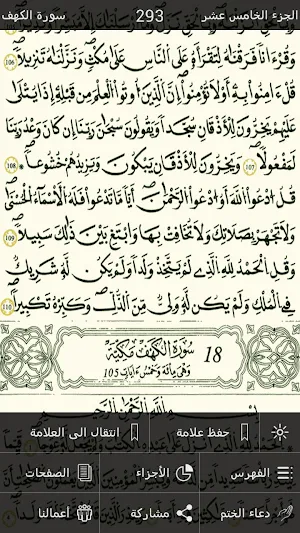 الجزء الخامس عشر 293 سورة الكهف
وَقُرْءَاناً فَرَقْنَٰهُ لِتَقْرَأَهُۥ عَلَى ٱلنَّاسِ عَلَىٰ مُكْثٖ وَنَزَّلْنَٰهُ تَنزِيلاًۖ
106 قُلَ اٰمِنُواْ بِهِۦٓ أَوْ لَا تُؤْمِنُوٓاْۖ إِنَّ ٱلَّذِينَ أُوتُواْ ٱلْعِلْمَ مِن قَبْلِهِۦٓ إِذَا يُتْلَىٰ
عَلَيْهِمْ يَخِرُّونَ لِلْأَذْقَانِ سُجَّداً وَيَقُولُونَ سُبْحَٰنَ رَبِّنَآ إِن كَانَ وَعْدُ رَبِّنَا
لَمَفْعُولاًۖ 107 وَيَخِرُّونَ لِلْأَذْقَانِ يَبْكُونَ وَيَزِيدُهُمْ خُشُوعاًۖ 108
قُلُ ادْعُواْ اللَّهَ أَوُ ادْعُواْ الرَّحْمَٰنَۖ أَيّاً مَّا تَدْعُواْ فَلَهُ الْأَسْمَآءُ الْحُسْنَىٰۖ
وَلَا تَجْهَرْ بِصَلَاتِكَ وَلَا تُخَافِتْ بِهَا وَابْتَغِ بَيْنَ ذَٰلِكَ سَبِيلاًۖ 109
وَقُلِ الْحَمْدُ لِلهِ الَّذِے لَمْ يَتَّخِذْ وَلَداً وَلَمْ يَكُن لَّهُۥ شَرِيكٌ
فِے الْمُلْكِ وَلَمْ يَكُن لَّهُۥ وَلِيٌّ مِّنَ الذُّلِّۖ وَكَبِّرْهُ تَكْبِيراًۖ 110
18 سُورَةُ الْكَهْفِ مَكِّيَّة
وَهْىَ مِائَة وَخَمْس ءَايَات 105
بِسْمِ اللَّهِ الرَّحْمَٰنِ الرَّحِيمِ
حفظ علامة انتقال الى العلامة
الفهرس الأجزاء الصفحات
دعاء الختم مشاركة أعمالنا